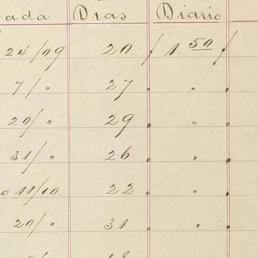 ada Dias Diario
24/09 20 / 1.50 /
7/ " 27 " " "
20/ " 29 " " "
31/ " 26 " " "
o 11/10. 22 " " "
20/ " 31 " " "